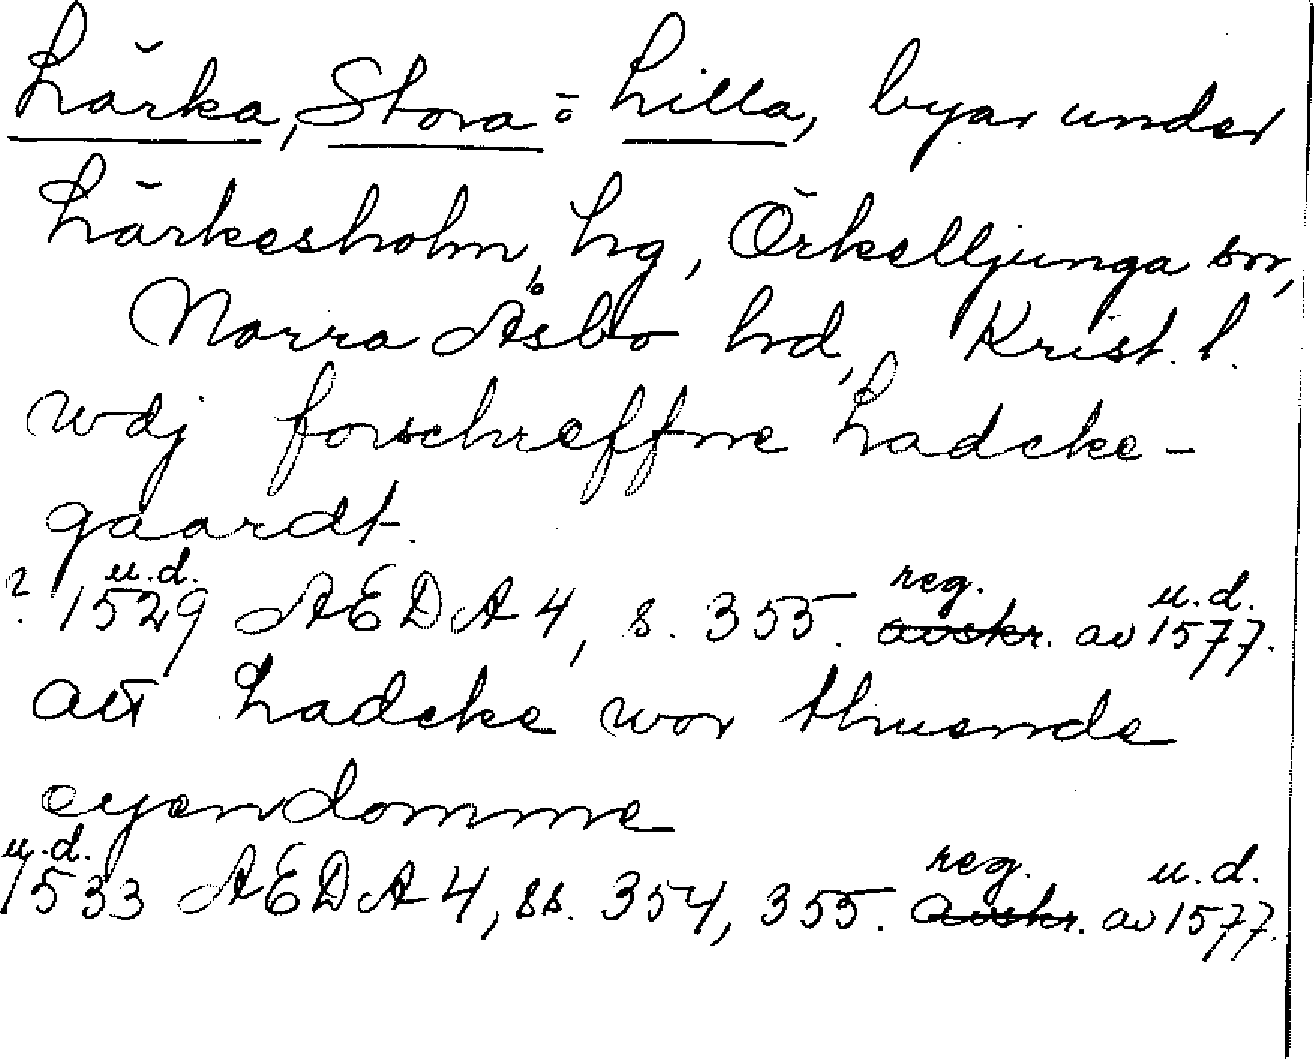 Lärka, Stora o Lilla, byar under
Lärkesholm, hg, Örkelljunga sn,
Norra Åsbo hd, Krist. l.
wdj forschreffne Ladcke-
gaardt.
? 1529 u.d. AEDA 4, s. 355. reg. avskr. av 1577 u.d.
att Ladcke wor thuende
eyendomme
1533 u.d. AEDA 4, ss. 354, 355. reg. avskr. av 1577 u.d.